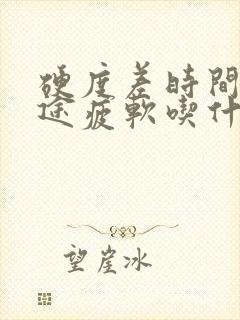 硬度差時間
途疲軟喫什
望崖冰